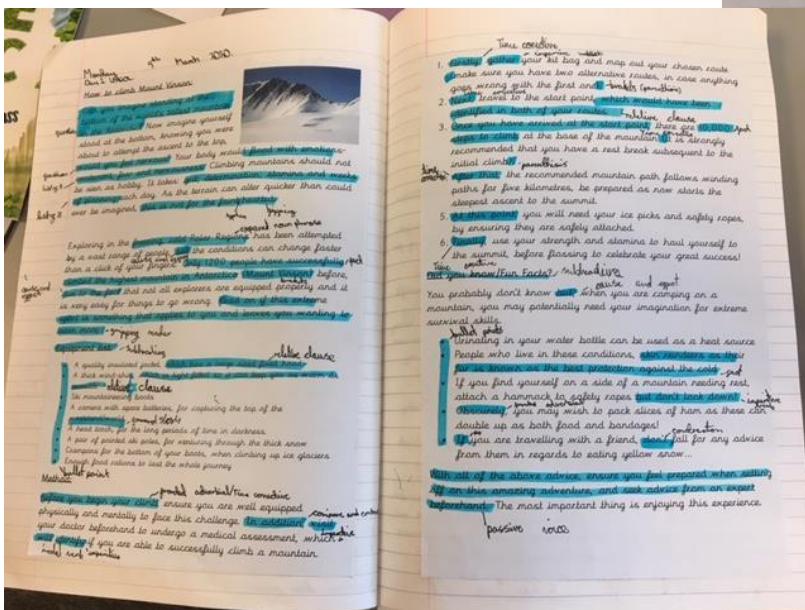 Monday 9th March 2020.
How to climb Mount Vinson
Now imagine yourself
stood at the bottom, knowing you were
about to attempt the ascent to the top,
would you feel nervous? Your body would flood with emotions-
Climbing mountains should not
be seen as hobby. It takes: grit, determination, stamina and weeks
of planning each day. As the terrain can alter quicker than could
ever be imagined, this is not for the fainthearted.
expanded noun phrase
Exploring in the Polar Regions has been attempted
by a vast range of people, but the conditions can change faster
than a click of your fingers. Only 1200 people have successfully
climbed the highest mountain in Antarctica (Mount Vinson) before,
due to the fact that not all explorers are equipped properly and it
is very easy for things to go wrong. Read on if this extreme
sport is something that applies to you and leaves you wanting to
learn more.
Equipment list - subheading
relative clause
A quality insulated jacket,
relative clause
Ski mountaineering boots
A camera with spare batteries, for capturing the top of the
A head torch, for the long periods of time in darkness
A pair of pointed ski poles, for venturing through the thick snow
Crampons for the bottom of your boots, when climbing up ice glaciers
Enough food rations to last the whole journey
bullet point
Method
fronted adverbial/time connective
Before you begin your climb, ensure you are well equipped
physically and mentally to face this challenge. In addition, visit
your doctor beforehand to undergo a medical assessment, which
will identify if you are able to successfully climb a mountain.
modal verb imperative
Time connective
1. Firstly, gather your kit bag and map out your chosen route
(make sure you have two alternative routes, in case anything
goes wrong with the first one). brackets (parenthesis)
2. Next, travel to the start point, which would have been
identified in both of your routes. relative clause
3. Once you have arrived at the start point, there are 10,000
steps to climb at the base of the mountain. It is strongly
recommended that you have a rest break subsequent to the
initial climb. parenthesis
After that, the recommended mountain path follows winding
paths for five kilometres, be prepared as now starts the
steepest ascent to the summit.
5. At this point, you will need your ice picks and safety ropes,
by ensuring they are safely attached.
6. Finally, use your strength and stamina to haul yourself to
the summit, before flossing to celebrate your great success!
Time connective
Did you know/Fun Facts? - subheading
cause and effect
You probably don't know but, when you are camping on a
mountain, you may potentially need your imagination for extreme
survival skills.
bullet points
Urinating in your water bottle can be used as a heat source
People who live in these conditions, skin reindeers as their
fur is known as the best protection against the cold.
If you find yourself on a side of a mountain needing rest,
attach a hammock to safety ropes but don't look down!
Obscurely, you may wish to pack slices of ham as these can
double up as both food and bandages!
contraction
If you are travelling with a friend, don't fall for any advice
from them in regards to eating yellow snow...
With all of the above advice, ensure you feel prepared when setting
off on this amazing adventure, and seek advice from an expert
beforehand. The most important thing is enjoying this experience.
passive voice